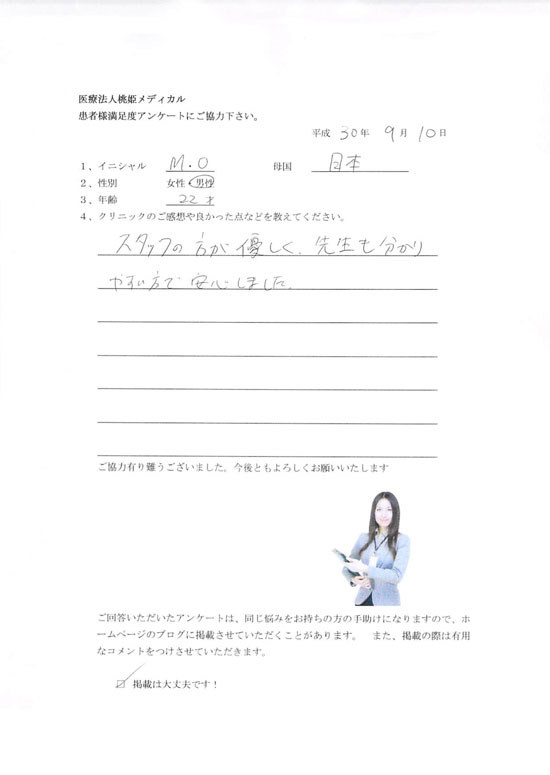 医療法人桃姫メディカル
患者様満足度アンケートにご協力下さい。
平成 30年 9月 10日
1、イニシャル M.O 母国 日本
2、性別 女性・男性
3、年齢 22才
4、クリニックのご感想や良かった点などを教えてください。
スタッフの方が優しく、先生も分かり
やすい方で安心しました。
ご協力有り難うございました。今後ともよろしくお願いいたします
ご回答いただいたアンケートは、同じ悩みをお持ちの方の手助けになりますので、ホ
ームページのブログに掲載させていただくことがあります。 また、掲載の際は有用
なコメントをつけさせていただきます。
☑ 掲載は大丈夫です！